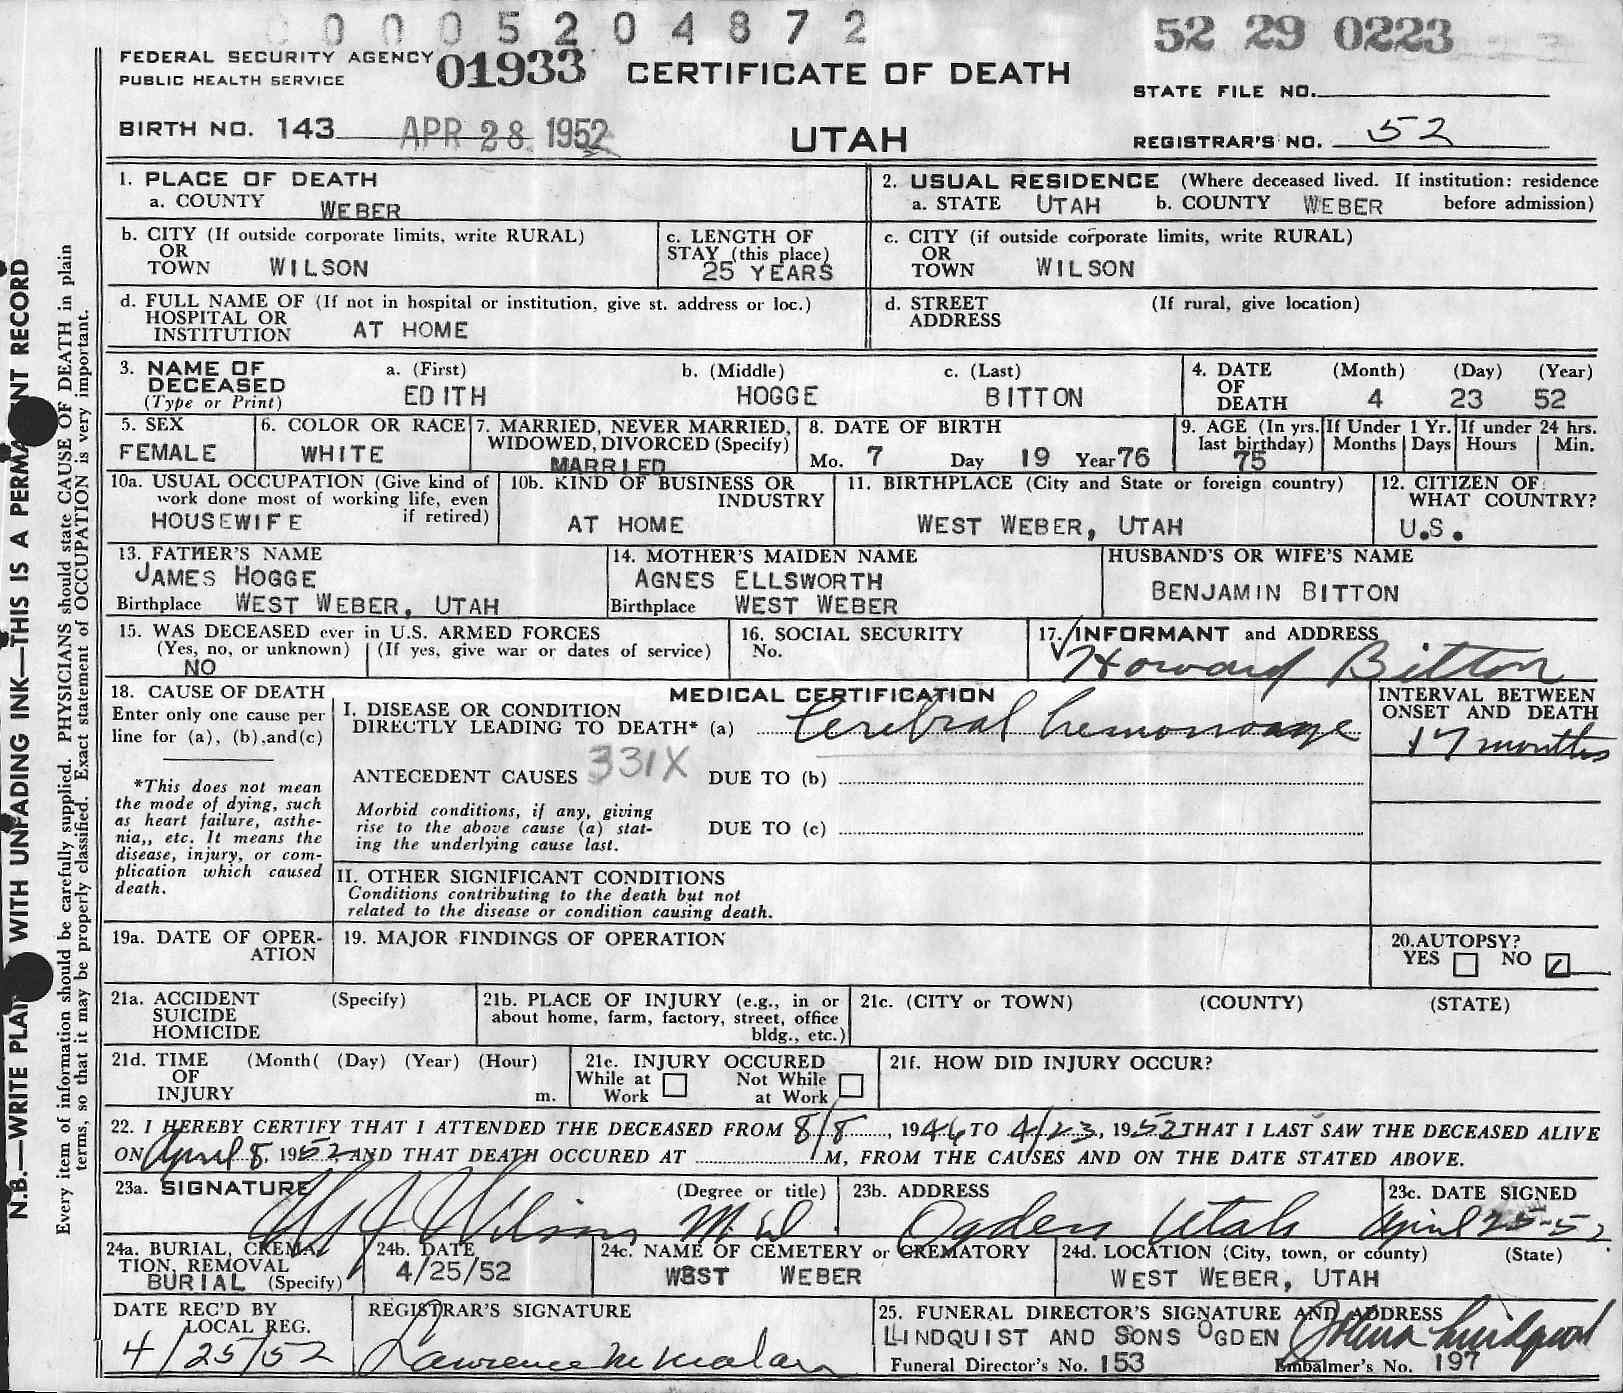 0005204872
52 29 0223
FEDERAL SECURITY AGENCY
PUBLIC HEALTH SERVICE
01933
CERTIFICATE OF DEATH
STATE FILE NO.
BIRTH NO. 143
APR 28 1952
UTAH
REGISTRAR'S NO. 52
N.B.—WRITE PLAI WITH UNFADING INK—THIS IS A PERMA NT RECORD
Every item of information should be carefully supplied. PHYSICIANS should state CAUSE OF DEATH in plain
terms, so that it may be properly classified. Exact statement of OCCUPATION is very important.
1. PLACE OF DEATH
a. COUNTY WEBER
2. USUAL RESIDENCE (Where deceased lived. If institution: residence
a. STATE UTAH b. COUNTY WEBER before admission)
b. CITY (If outside corporate limits, write RURAL)
OR
TOWN WILSON
c. LENGTH OF
STAY (this place)
25 YEARS
c. CITY (if outside corporate limits, write RURAL)
OR
TOWN WILSON
d. FULL NAME OF (If not in hospital or institution, give st. address or loc.)
HOSPITAL OR
INSTITUTION AT HOME
d. STREET (If rural, give location)
ADDRESS
3. NAME OF
DECEASED
(Type or Print)
a. (First) b. (Middle) c. (Last)
EDITH HOGGE BITTON
4. DATE (Month) (Day) (Year)
OF
DEATH 4 23 52
5. SEX
FEMALE
6. COLOR OR RACE
WHITE
7. MARRIED, NEVER MARRIED,
WIDOWED, DIVORCED (Specify)
MARRIED
8. DATE OF BIRTH
Mo. 7 Day 19 Year 76
9. AGE (In yrs.
last birthday)
75
If Under 1 Yr.
Months Days
If under 24 hrs.
Hours Min.
10a. USUAL OCCUPATION (Give kind of
work done most of working life, even
HOUSEWIFE if retired)
10b. KIND OF BUSINESS OR
INDUSTRY
AT HOME
11. BIRTHPLACE (City and State or foreign country)
WEST WEBER, UTAH
12. CITIZEN OF
WHAT COUNTRY?
U.S.
13. FATHER'S NAME
JAMES HOGGE
Birthplace WEST WEBER, UTAH
14. MOTHER'S MAIDEN NAME
AGNES ELLSWORTH
Birthplace WEST WEBER
HUSBAND'S OR WIFE'S NAME
BENJAMIN BITTON
15. WAS DECEASED ever in U.S. ARMED FORCES
(Yes, no, or unknown) (If yes, give war or dates of service)
NO
16. SOCIAL SECURITY
No.
17. INFORMANT and ADDRESS
Howard Bitton
18. CAUSE OF DEATH
Enter only one cause per
line for (a), (b),and(c)
*This does not mean
the mode of dying, such
as heart failure, asthe-
nia,, etc. It means the
disease, injury, or com-
plication which caused
death.
MEDICAL CERTIFICATION
I. DISEASE OR CONDITION
DIRECTLY LEADING TO DEATH* (a) Cerebral hemorrage
ANTECEDENT CAUSES 331X DUE TO (b)
Morbid conditions, if any, giving
rise to the above cause (a) stat-
ing the underlying cause last.
DUE TO (c)
II. OTHER SIGNIFICANT CONDITIONS
Conditions contributing to the death but not
related to the disease or condition causing death.
INTERVAL BETWEEN
ONSET AND DEATH
17 months
19a. DATE OF OPER-
ATION
19. MAJOR FINDINGS OF OPERATION
20.AUTOPSY?
YES NO
21a. ACCIDENT (Specify)
SUICIDE
HOMICIDE
21b. PLACE OF INJURY (e.g., in or
about home, farm, factory, street, office
bldg., etc.)
21c. (CITY or TOWN) (COUNTY) (STATE)
21d. TIME (Month( (Day) (Year) (Hour)
OF
INJURY m.
21e. INJURY OCCURED
While at Not While
Work at Work
21f. HOW DID INJURY OCCUR?
22. I HEREBY CERTIFY THAT I ATTENDED THE DECEASED FROM 8/8, 1946 TO 4/23, 1952 THAT I LAST SAW THE DECEASED ALIVE
ON April 8, 1952 AND THAT DEATH OCCURED AT M, FROM THE CAUSES AND ON THE DATE STATED ABOVE.
23a. SIGNATURE (Degree or title)
Wilson M.D.
23b. ADDRESS
Ogden Utah
23c. DATE SIGNED
April 25-52
24a. BURIAL, CREMA-
TION, REMOVAL
BURIAL (Specify)
24b. DATE
4/25/52
24c. NAME OF CEMETERY or CREMATORY
WEST WEBER
24d. LOCATION (City, town, or county) (State)
WEST WEBER, UTAH
DATE REC'D BY
LOCAL REG.
4/25/52
REGISTRAR'S SIGNATURE
Lawrence M Malan
25. FUNERAL DIRECTOR'S SIGNATURE AND ADDRESS
LINDQUIST AND SONS OGDEN
Funeral Director's No. 153 Embalmer's No. 197